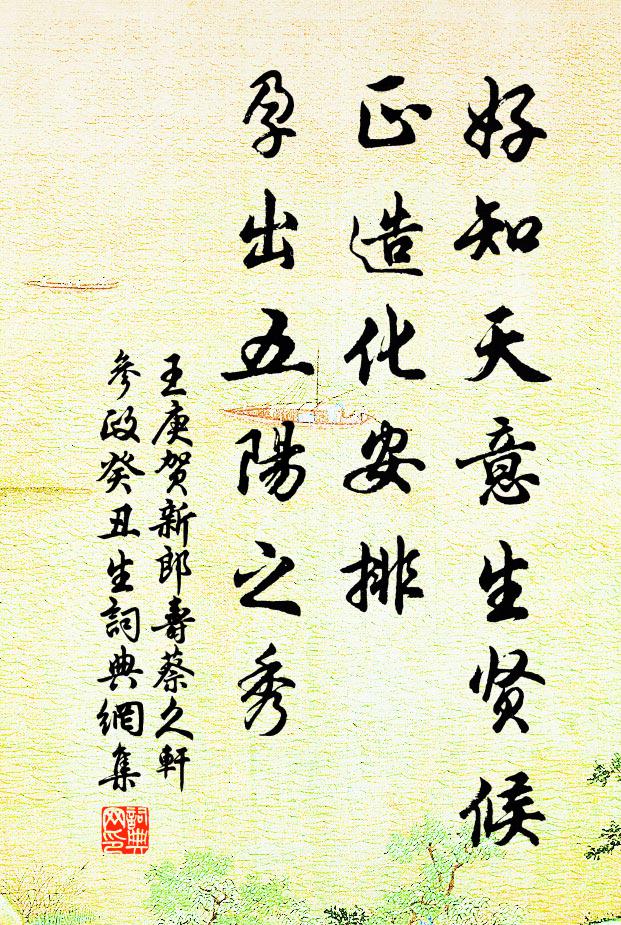 好知天意生贤候
正造化安排
孕出五陽之秀
王庚賀新郎壽蔡久軒
參政癸丑生詞典網集
詞典
网印